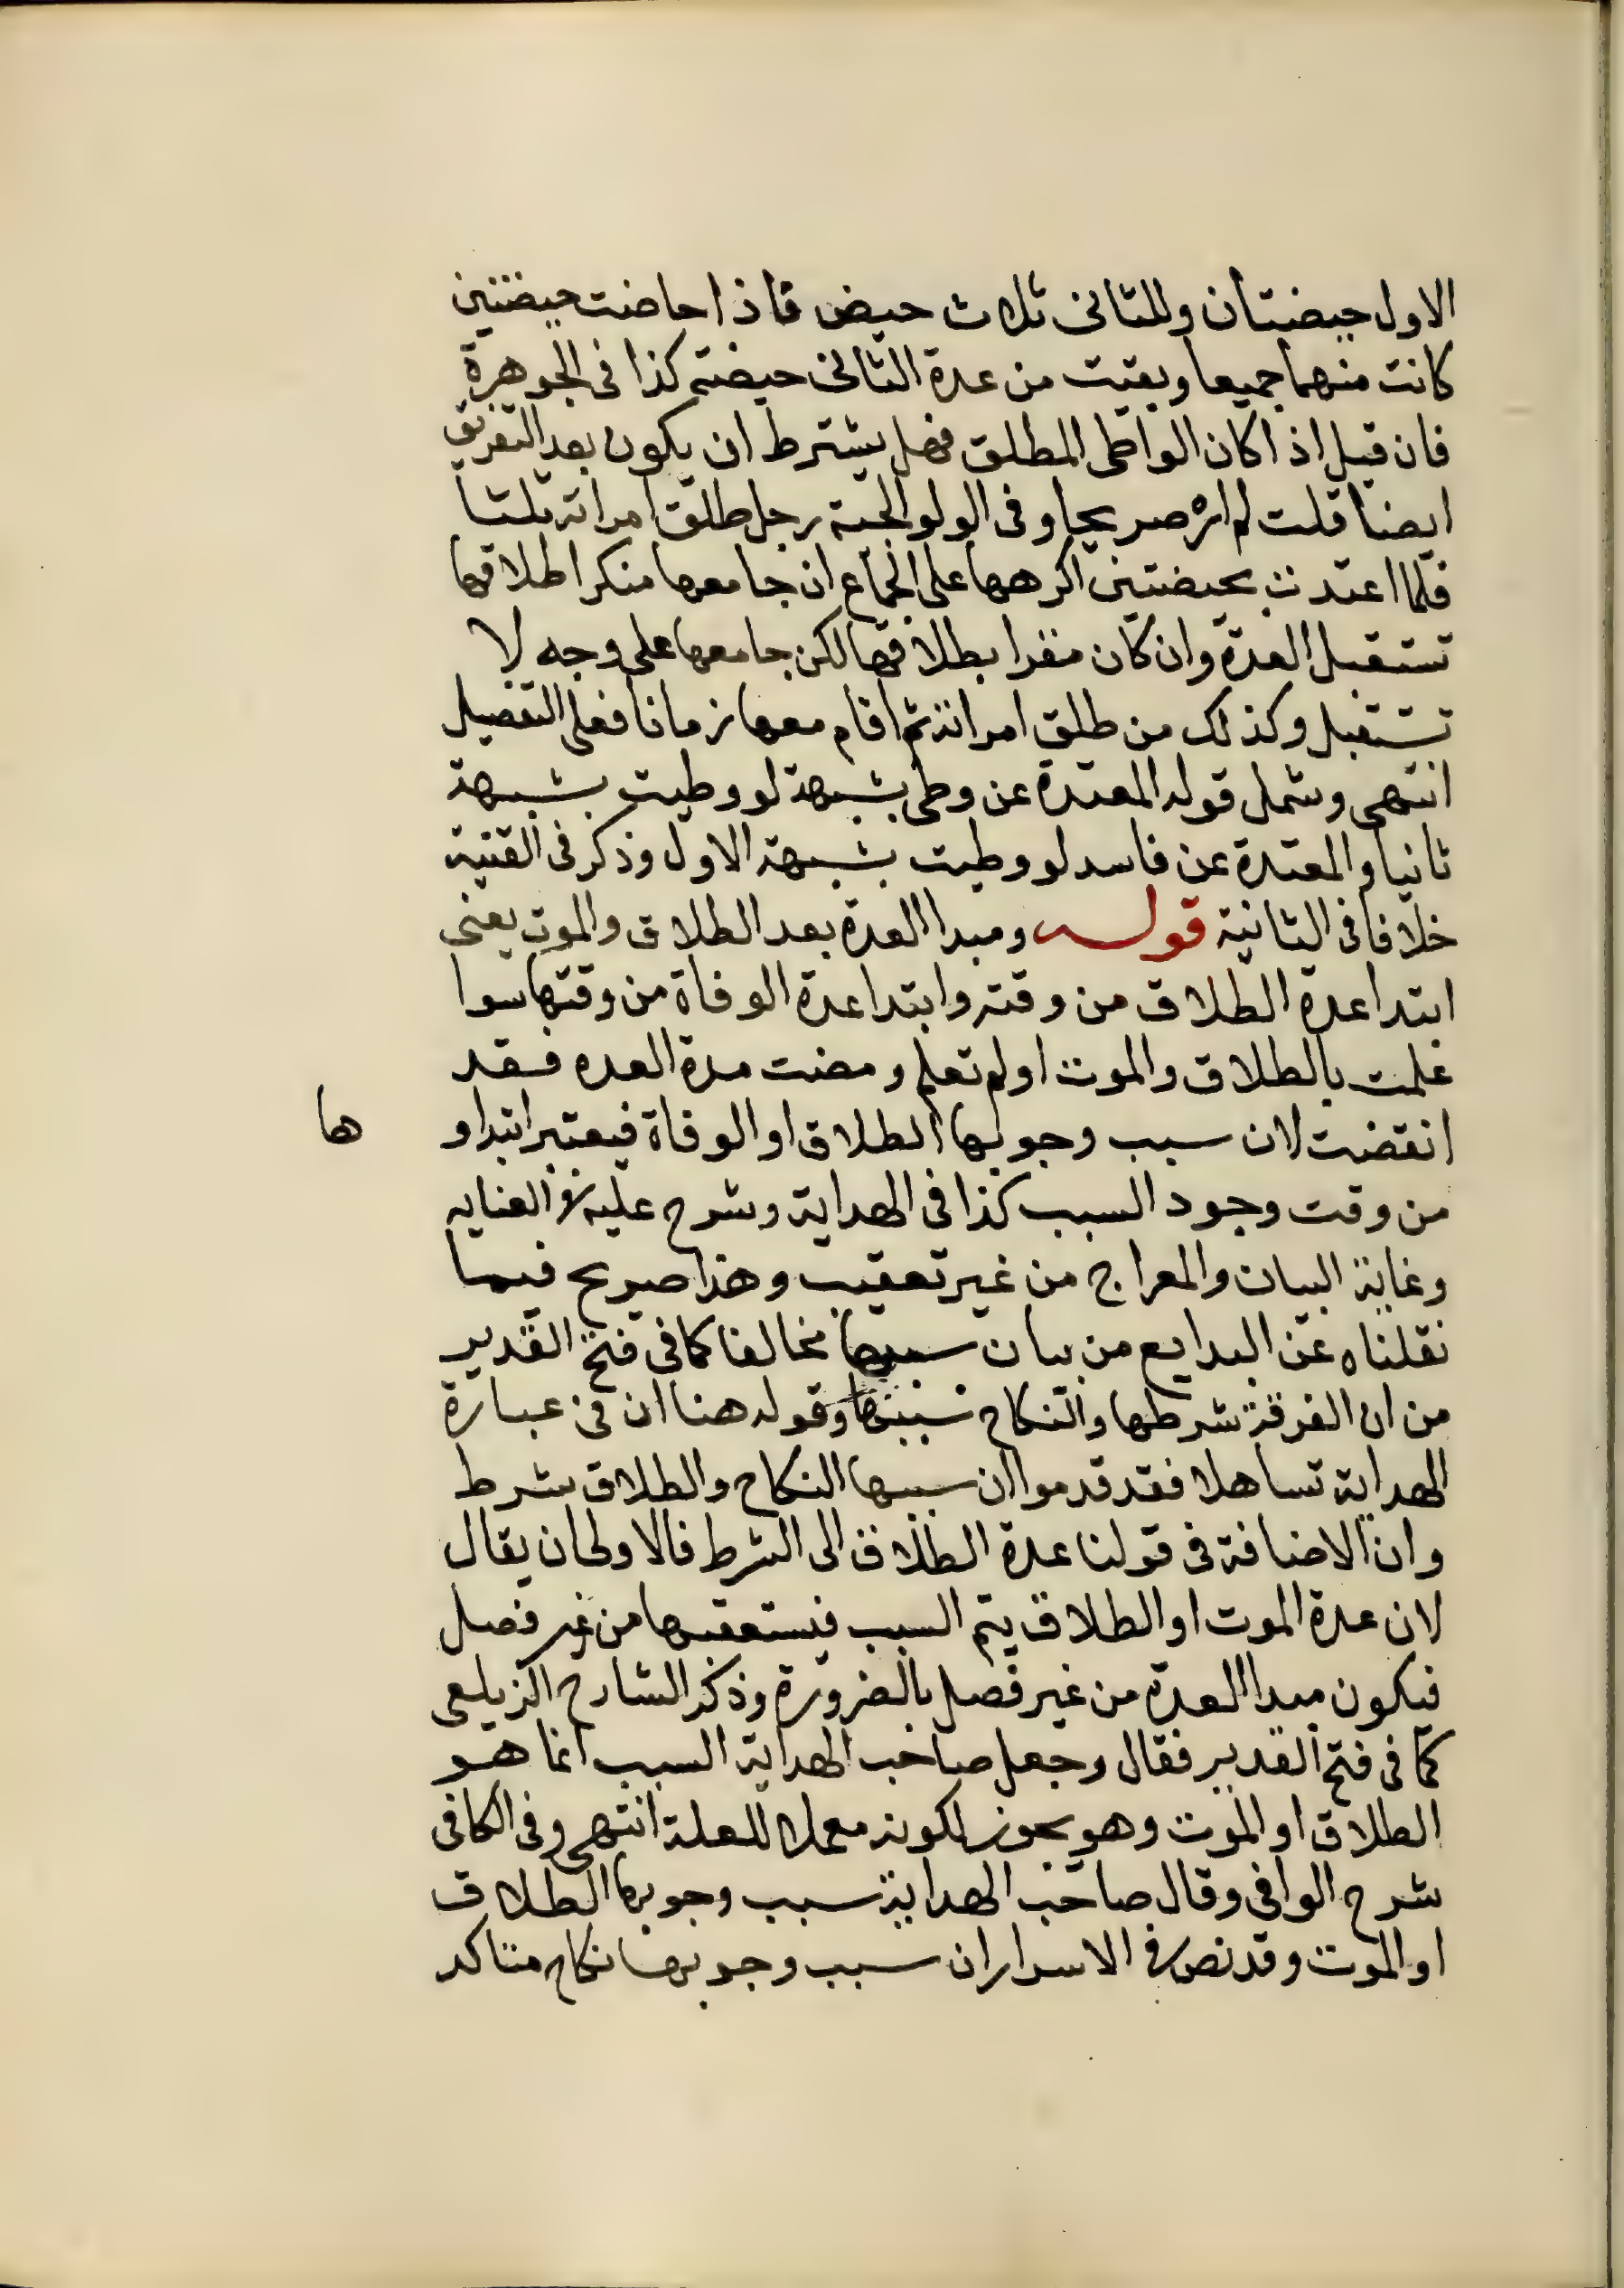 الاول حيضتان وللثانى ثلاث حيض فاذا حاضت حيضتين
كانت منهما جميعا وبقيت من عدة الثانى حيضة كذا فى الجوهرة
فان قيل اذا كان الواطى المطلق فهل يشترط ان يكون بعد التفريق
ايضا قلت لم اره صريحا وفى الولوالجية رجل طلق امراته ثلثا
فلما اعتدت بحيضتين اكرهها على الجماع ان جامعها منكرا طلاقها
تستقبل العدة وان كان مقرا بطلاقها لكن جامعها على وجه لا
تستقبل وكذلك من طلق امراته ثم اقام معها زمانا فعلى التفصيل
انتهى وشمل قوله المعتدة عن وطى بشبهة لو وطيت بشبهة
ثانيا والمعتدة عن فاسد لو وطيت بشبهة الاول وذكر فى القنية
خلافا فى الثانية قوله ومبدا العدة بعد الطلاق والموت يعنى
ابتدا عدة الطلاق من وقته وابتدا عدة الوفاة من وقتها سوا
علمت بالطلاق والموت او لم تعلم ومضت مدة العده فقد
انقضت لان سبب وجوبها الطلاق او الوفاة فيعتبر ابتداو
ها
من وقت وجود السبب كذا فى الهداية وشرح عليه فى العنايه
وغاية البيان والمعراج من غير تعقيب وهذا صريح فيما
نقلناه عن البدايع من بيان سببها مخالفا كما فى فتح القدير
من ان الفرقة شرطها والنكاح سببها وقوله هنا ان فى عبارة
الهداية تساهلا فقد قدموا ان سببها النكاح والطلاق شرط
وان الاضافة فى قولنا عدة الطلاق الى الشرط فالاولى ان يقال
لان عدة الموت او الطلاق يتم السبب فيستعقبها من غير فصل
فيكون مبدا العدة من غير فصل بالضرورة وذكر الشارح الزيلعى
كما فى فتح القدير فقال وجعل صاحب الهداية السبب انما هو
الطلاق او الموت وهو يجوز لكونه معملا للعلة انتهى وفى الكافى
شرح الوافى وقال صاحب الهداية سبب وجوبها الطلاق
او الموت وقد نص فى الاسرار ان سبب وجوبها نكاح متاكد